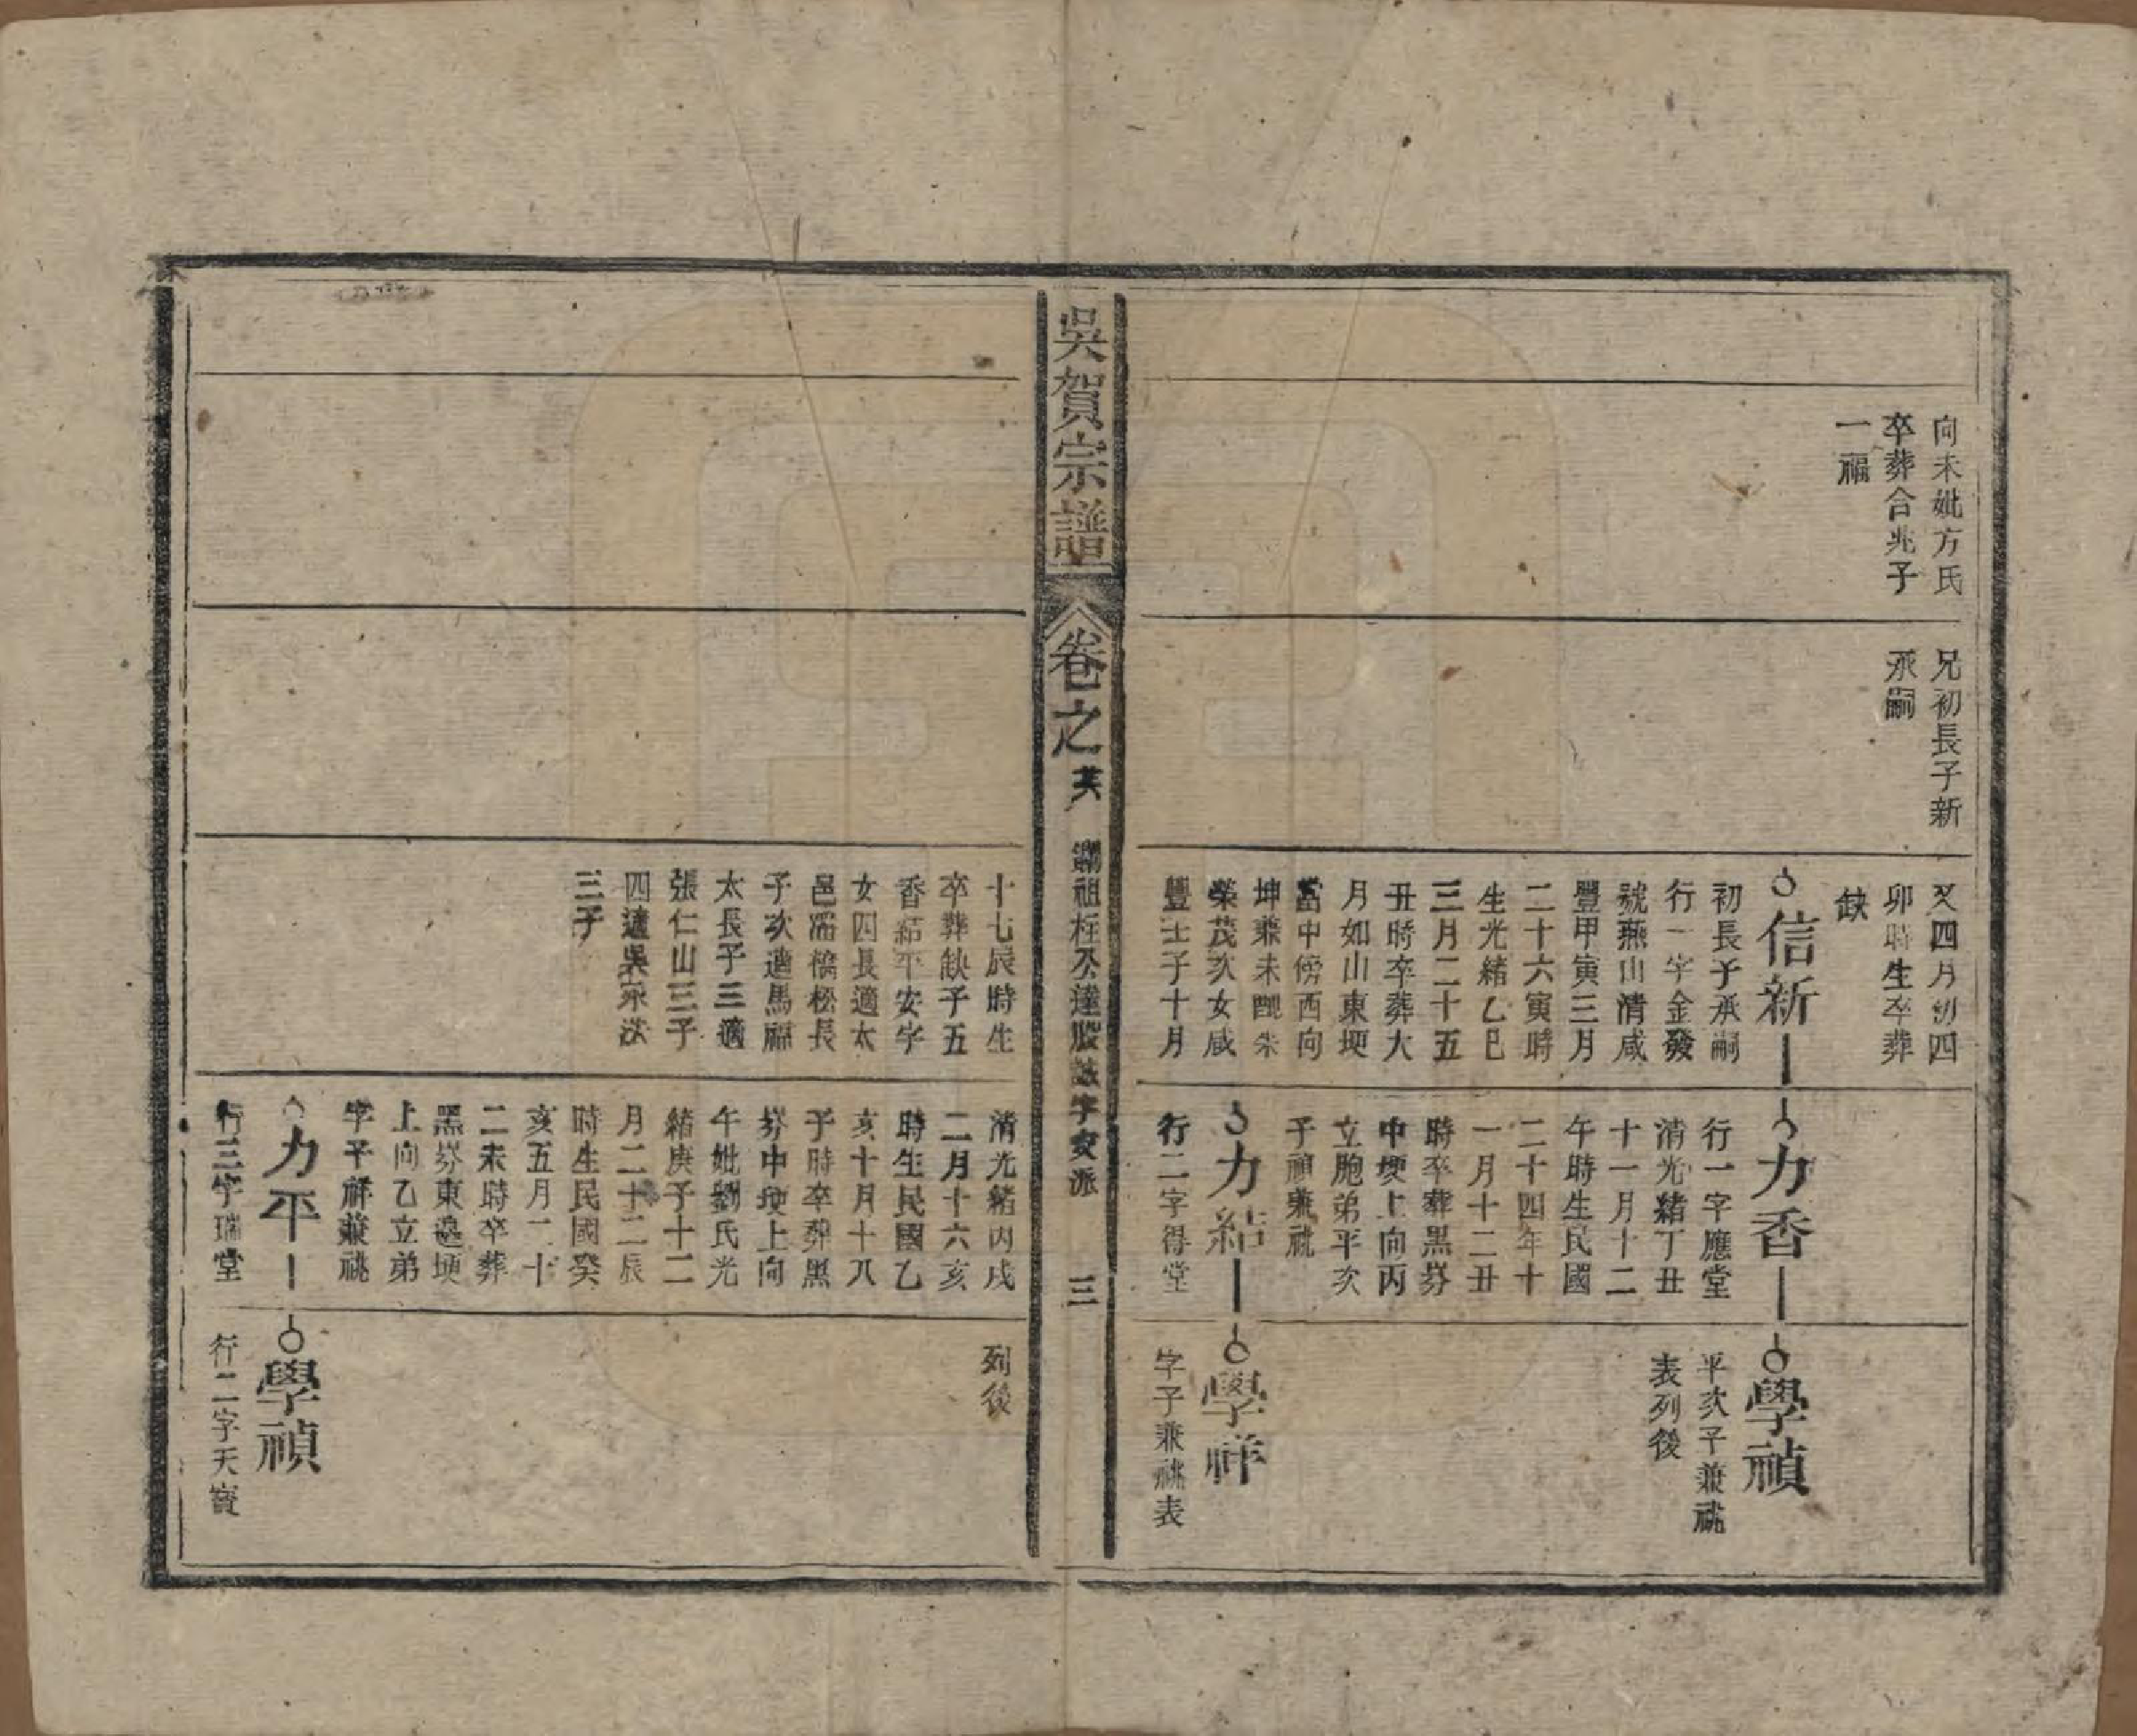 向未妣方氏
卒葬合兆子
一福
兄初長子新
承嗣
又四月初四
卯時生卒葬
缺
信新
初長子承嗣
行一字金發
號燕山清咸
豐甲寅三月
二十六寅時
生光緒乙巳
三月二十五
丑時卒葬大
月如山東埂
當中傍西向
坤兼未配朱
榮茂次女咸
豐壬子十月
力香
行一字應堂
清光緒丁丑
十一月十二
午時生民國
二十四年十
一月十二丑
時卒葬黑崗
中埂上向丙
立胞弟平次
子禎兼祧
力結
行二字得堂
學禎
平次子兼祧
表列後
學祥
字子兼祧表
吳賀宗譜
卷之
三
十七辰時生
卒葬缺子五
香結平安字
女四長適太
邑 橋松長
子次適馬福
太長子三適
張仁山三子
四適吳
三子
清光緒丙戌
二月十六亥
時生民國乙
亥十月十八
子時卒葬黑
崗中埂上向
午妣劉氏光
緒庚子十二
月二十二辰
時生民國癸
亥五月二十
二未時卒葬
黑崗東邊埂
上向乙立弟
字子祥兼祧
力平
行三字瑞堂
列後
學禎
行二字天寶